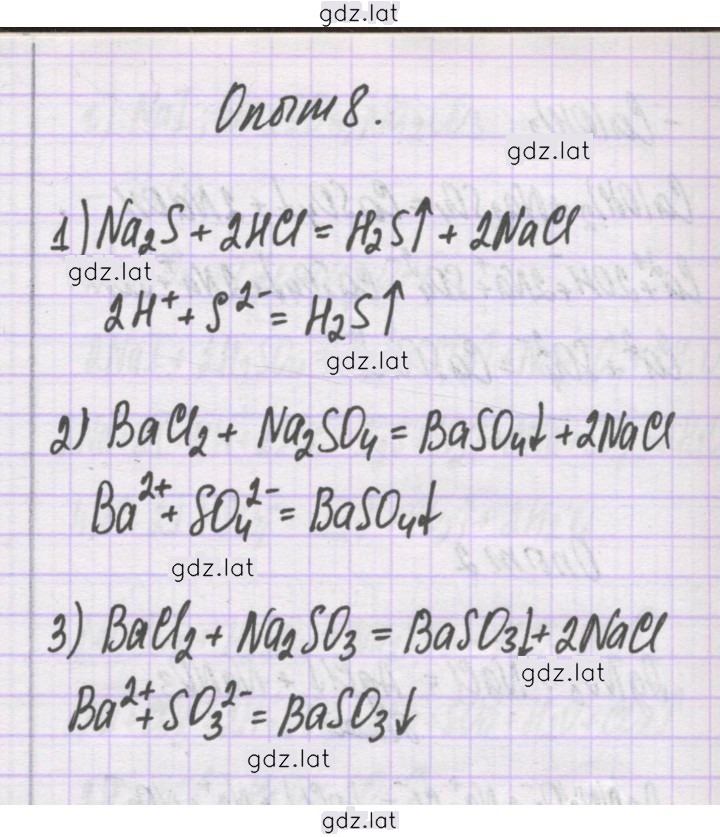 gdz.lat
Опыт 8.
gdz.lat
1) Na₂S + 2HCl = H₂S↑ + 2NaCl
gdz.lat
2H⁺ + S²⁻ = H₂S↑
gdz.lat
2) BaCl₂ + Na₂SO₄ = BaSO₄↓ + 2NaCl
Ba²⁺ + SO₄²⁻ = BaSO₄↓
gdz.lat
3) BaCl₂ + Na₂SO₃ = BaSO₃↓ + 2NaCl
gdz.lat
Ba²⁺ + SO₃²⁻ = BaSO₃↓
gdz.lat
gdz.lat